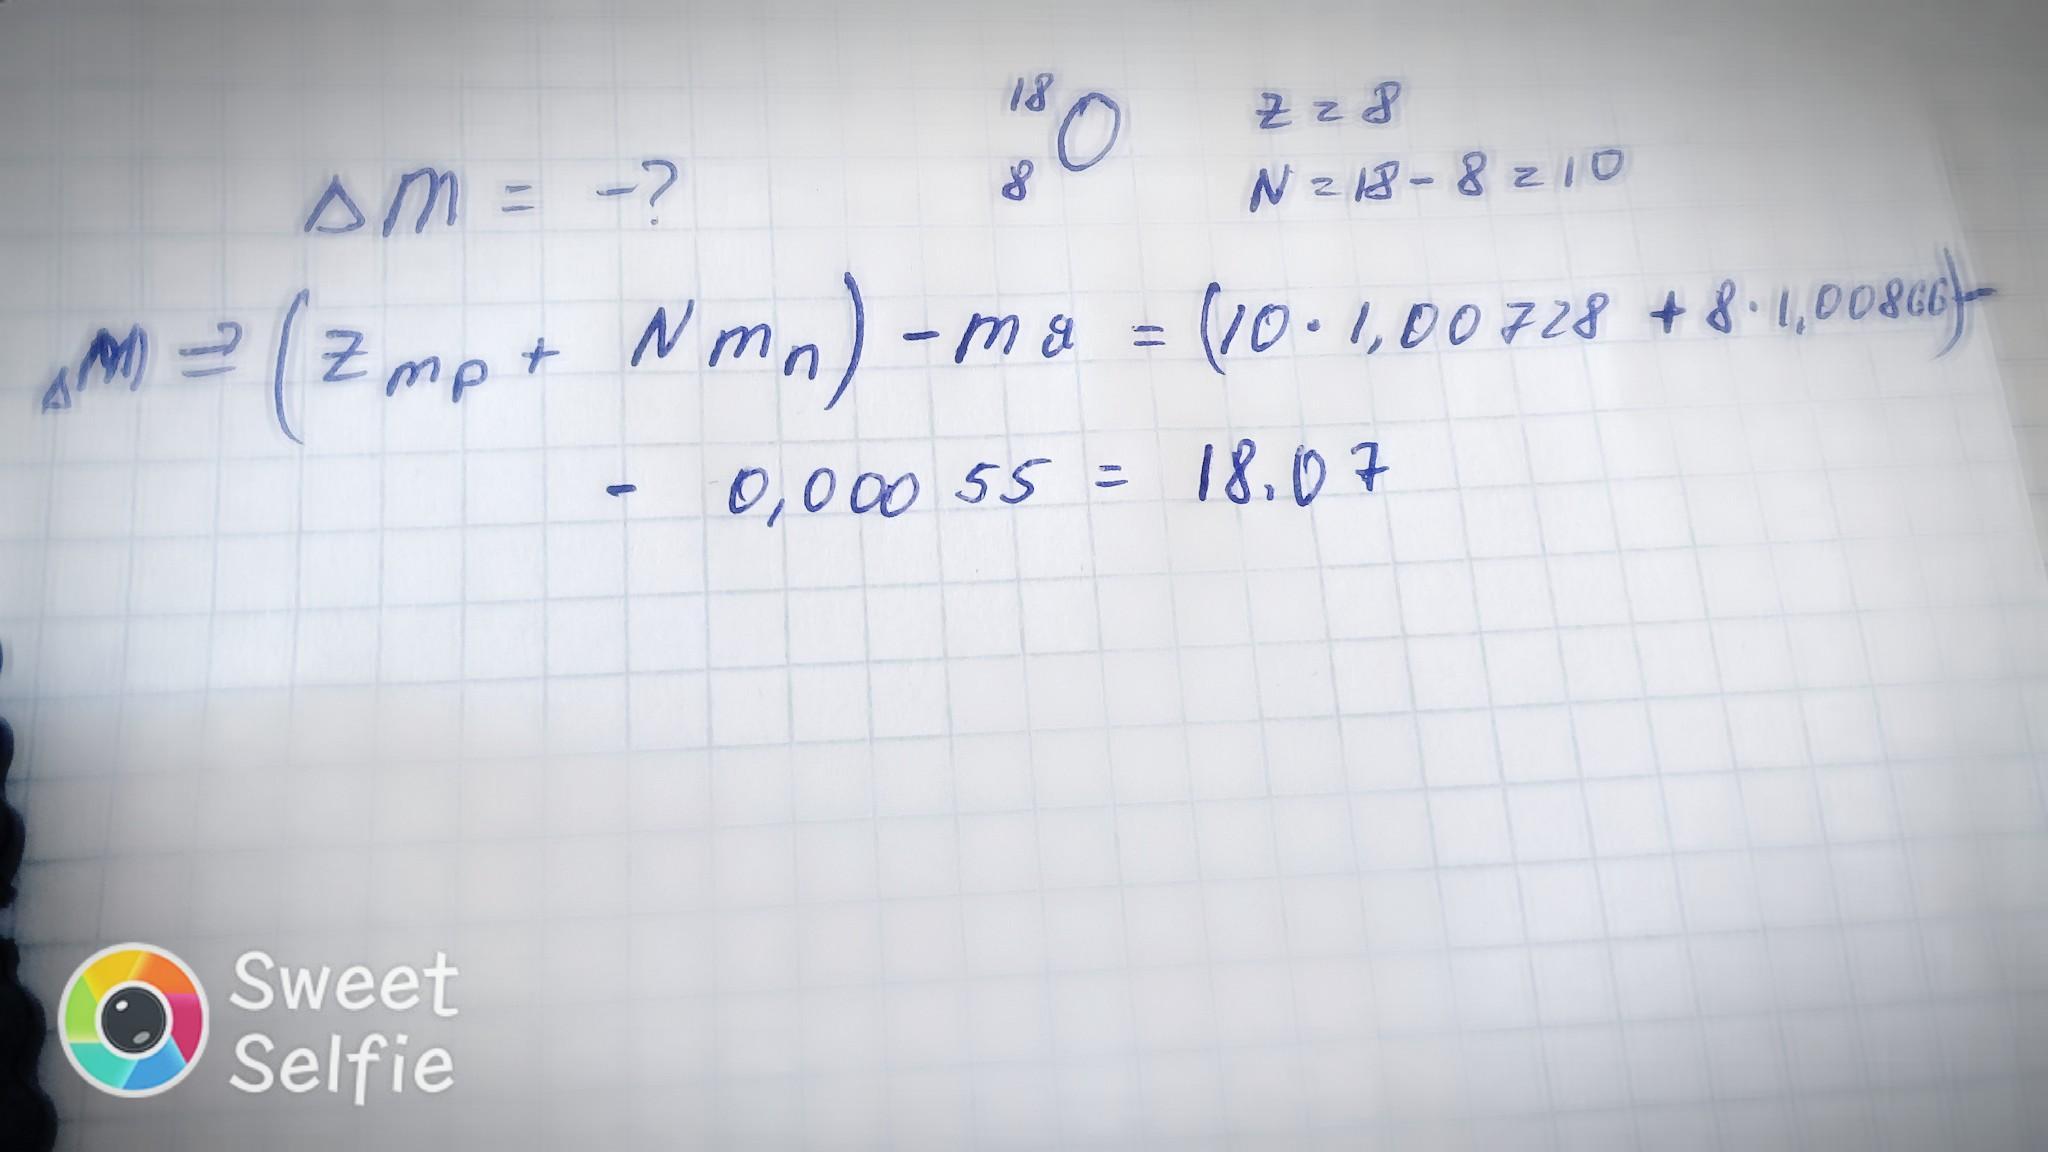 18
8 O z = 8
ΔM = -? N = 18 - 8 = 10
ΔM => (Z mp + N mn) - mя = (10 · 1,00728 + 8 · 1,00866) -
- 0,00055 = 18.07
Sweet
Selfie